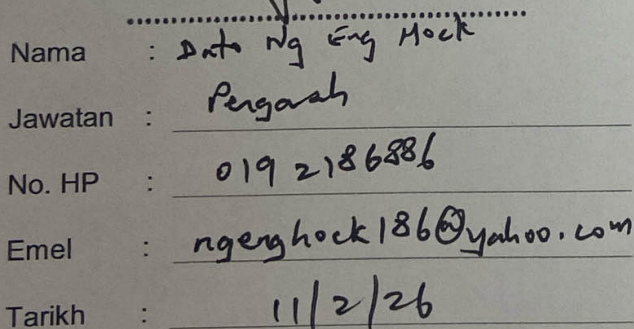 Nama : Dato Ng Eng Hock
Jawatan : Pengarah
No. HP : 019 2186886
Emel : ngenghock186@yahoo.com
Tarikh : 11/2/26